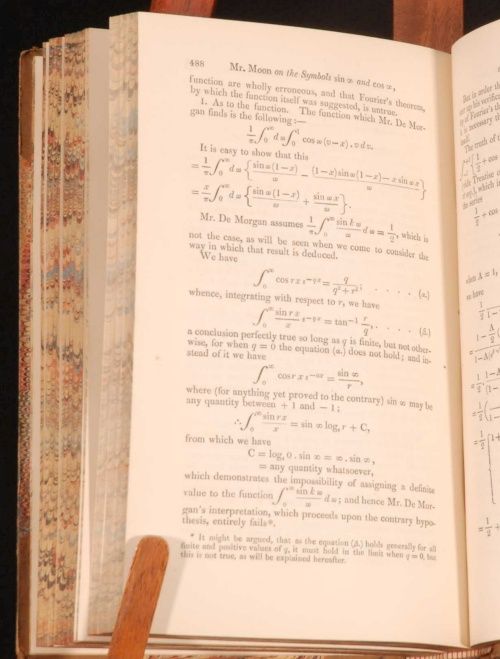 488
Mr. Moon on the Symbols sin ∞ and cos ∞,
function are wholly erroneous, and that Fourier's theorem,
by which the function itself was suggested, is untrue.
1. As to the function. The function which Mr. De Mor-
gan finds is the following:—
1/π ∫₀^∞ dw ∫₀^1 cos w (v−x) . v dv.
It is easy to show that this
= 1/π ∫₀^∞ dw { sin w (1−x) / w − (1−x) sin w (1−x) − x sin wx / w }
= x/π ∫₀^∞ dw { sin w (1−x) / w + sin w x / w }.
Mr. De Morgan assumes 1/π ∫₀^∞ sin k w / w dw = 1/2, which is
not the case, as will be seen when we come to consider the
way in which that result is deduced.
We have
∫₀^∞ cos r x ε^−qx = q / q² + r²; . . . . (a.)
whence, integrating with respect to r, we have
∫₀^∞ sin r x / x ε^−qx = tan⁻¹ r / q, . . . . (β.)
a conclusion perfectly true so long as q is finite, but not other-
wise, for when q = 0 the equation (a.) does not hold; and in-
stead of it we have
∫₀^∞ cos r x ε^−ox = sin ∞ / r,
where (for anything yet proved to the contrary) sin ∞ may be
any quantity between + 1 and − 1;
∴ ∫₀^∞ sin r x / x = sin ∞ log, r + C,
from which we have
C = log, 0 . sin ∞ = ∞ . sin ∞,
= any quantity whatsoever,
which demonstrates the impossibility of assigning a definite
value to the function ∫₀^∞ sin k w / w dw; and hence Mr. De Mor-
gan's interpretation, which proceeds upon the contrary hypo-
thesis, entirely fails*.
* It might be argued, that as the equation (β.) holds generally for all
finite and positive values of q, it must hold in the limit when q = 0, but
this is not true, as will be explained hereafter.
But in order th
of Fourier's th
is necessary th
The truth of
the series
1/2 + cos
when Δ = 1,